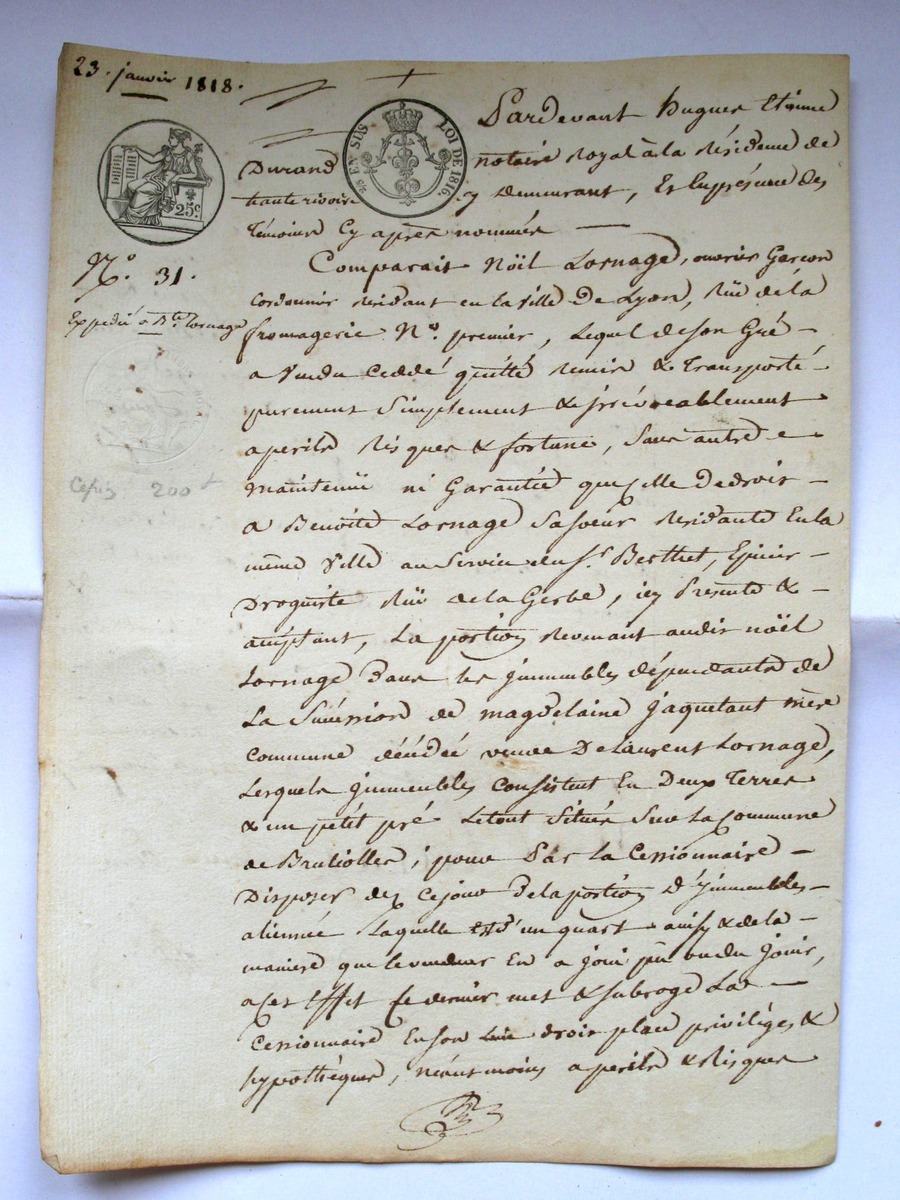 23. janvier 1818.
25c.
25c EN SUS LOI DE 1816.
N.° 31.
Expedié a B.te Lornage
Cession 200 #
Pardevant hugues Etienne
Durand notaire Royal à la Résidence de
hauterivoire y demeurant, Et En présence des
Témoins Cy après nommés
Comparait Nöel Lornage, ouvrier Garçon
Cordonnier Résidant en la Ville De Lyon, Rüe de la
fromagerie N.° premier, Lequel de son Gré -
a Vendu Ceddé quitté Remis & Transporté -
purement Simplement & irrévocablement
a perils Risques & fortune, Sans autre
maintenüe ni Garantie que Celle De droit -
a Benoite Lornage Sa soeur Residante En la
même Ville au Service du S.r Berthet, Epicier -
Droguiste Rüe de la Gerbe, icy Presente & -
acceptant, La portion Revenant audit nöel
Lornage Dans les jmmeubles dépendants de
La Suscession de magdelaine jaquetant mère
Commune décédée veuve De Laurent Lornage,
Lesquels jmmeubles Consistent En Deux Terres
& un pétit pré Le tout Situés Sur La Commune
de Brulliolles; pour Par La Cessionnaire -
Disposer dez Ce jour De la portion D'jmmeubles -
alienée Laquelle Est d'un quart ainsy & de la -
maniere que le vendeur En a joui pû ou du jouir,
a Cet Effet Ce dernier met & subroge La -
Cessionnaire En son droit place priviléges &
hypothèques, néantmoins a perils & Risques